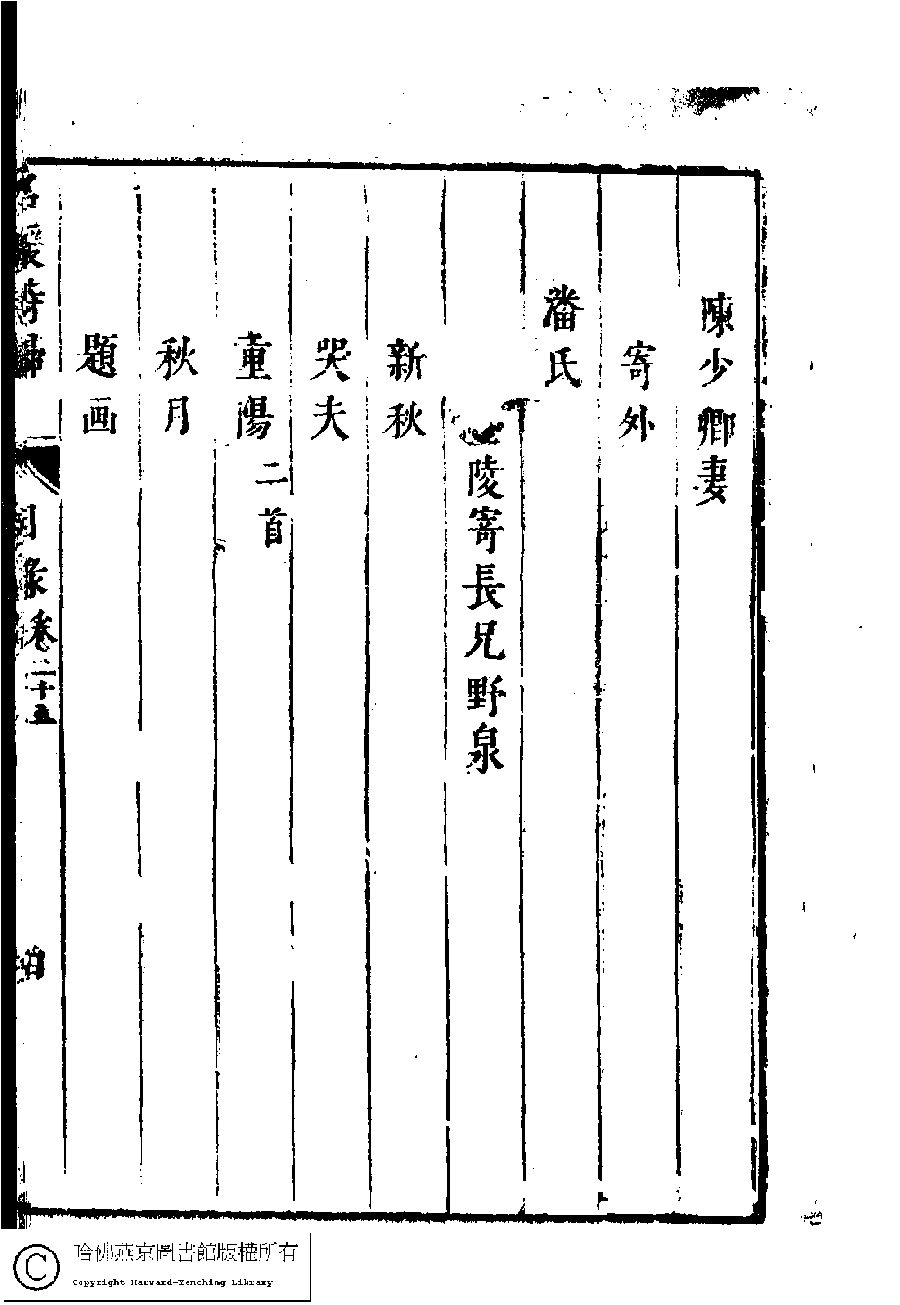 陳少卿妻
寄外
潘氏
陵寄長兄野泉
新秋
哭夫
重陽二首
秋月
題画
名媛詩歸
目錄卷二十五
哈佛燕京圖書館版權所有
Copyright Harvard-Yenching Library